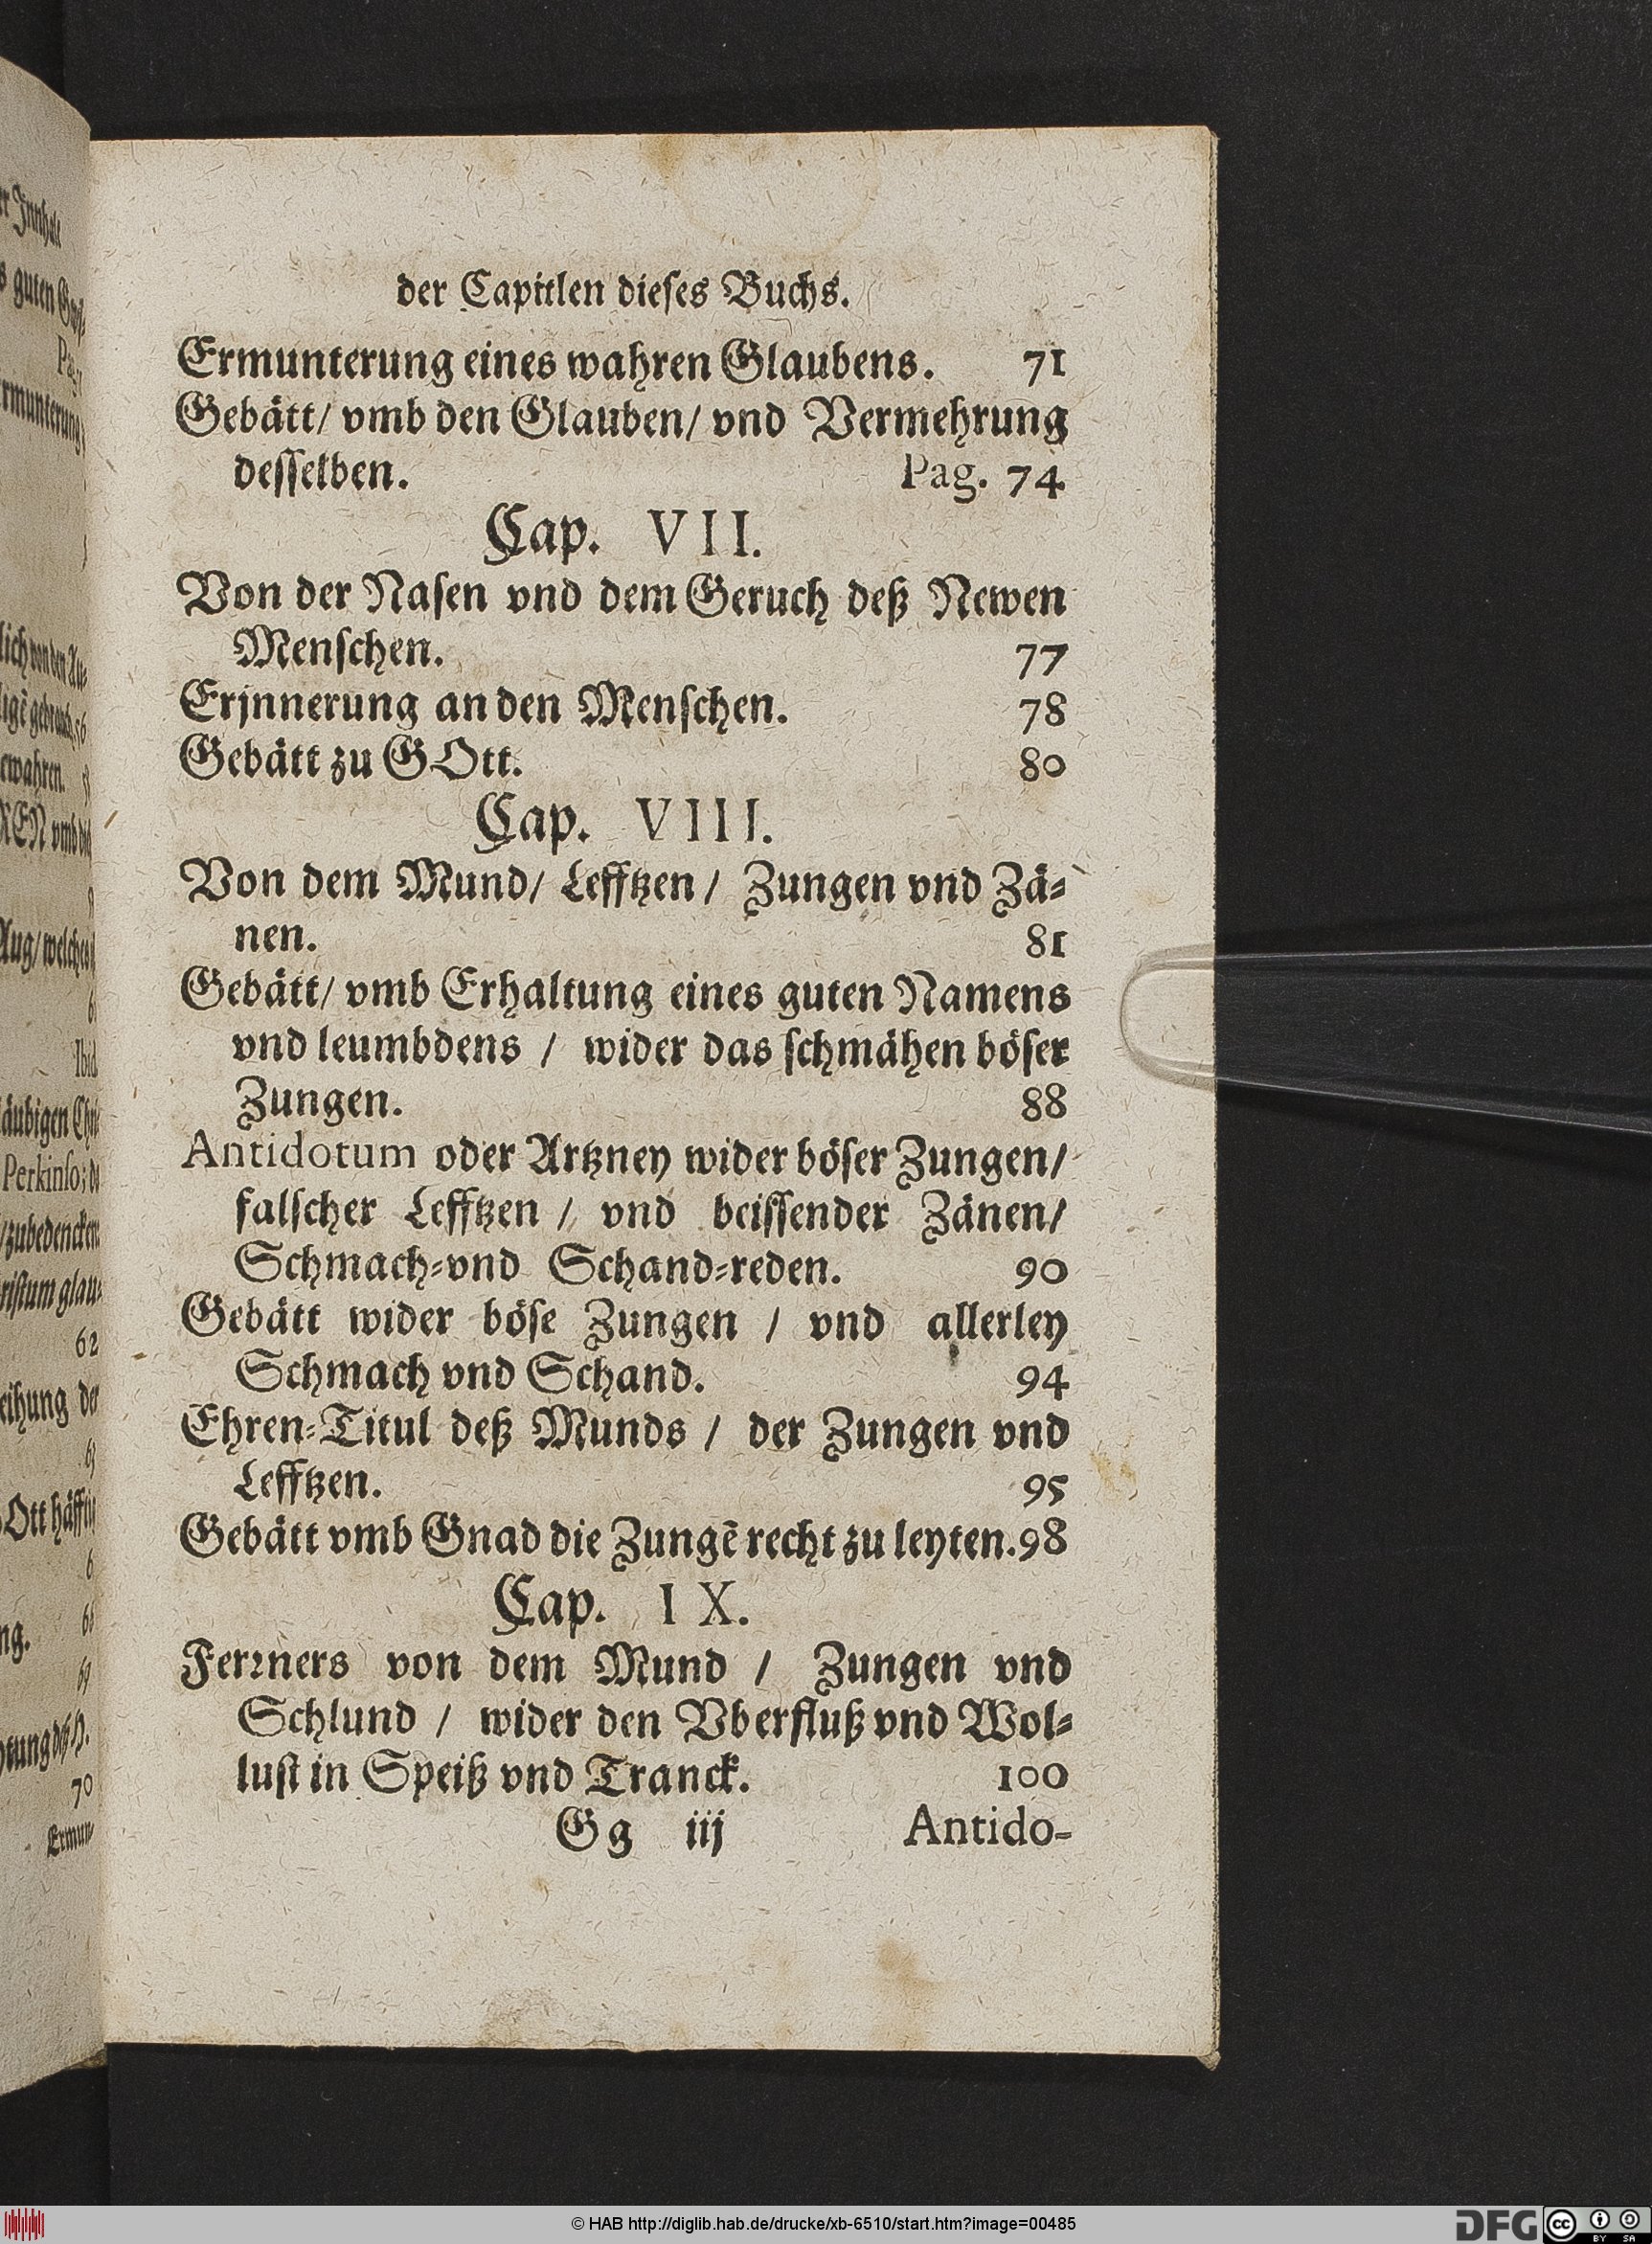 der Capitlen dieses Buchs.
Ermunterung eines wahren Glaubens. 71
Gebätt/ vmb den Glauben/ vnd Vermehrung
desselben. Pag. 74.
Cap. VII.
Von der Nasen vnd dem Geruch deß Newen
Menschen. 77
Erjnnerung an den Menschen. 78
Gebätt zu GOtt. 80
Cap. VIII.
Von dem Mund/ Lefftzen / Zungen vnd Zä-
nen. 81
Gebätt/ vmb Erhaltung eines guten Namens
vnd leumbdens / wider das schmähen böser
Zungen. 88
Antidotum oder Artzney wider böser Zungen/
falscher Lefftzen / vnd beissender Zänen/
Schmach-vnd Schand-reden. 90
Gebätt wider böse Zungen / vnd allerley
Schmach vnd Schand. 94
Ehren-Titul deß Munds / der Zungen vnd
Lefftzen. 95
Gebätt vmb Gnad die Zungē recht zu leyten. 98
Cap. IX.
Ferꝛners von dem Mund / Zungen vnd
Schlund / wider den Vberfluß vnd Wol-
lust in Speiß vnd Tranck. 100
Gg iij Antido-
Innhalt
guten
Ibid.
Perkinso;
/zubedencken
62
70
Ermun-
© HAB http://diglib.hab.de/drucke/xb-6510/start.htm?image=00485
DFG
cc BY SA